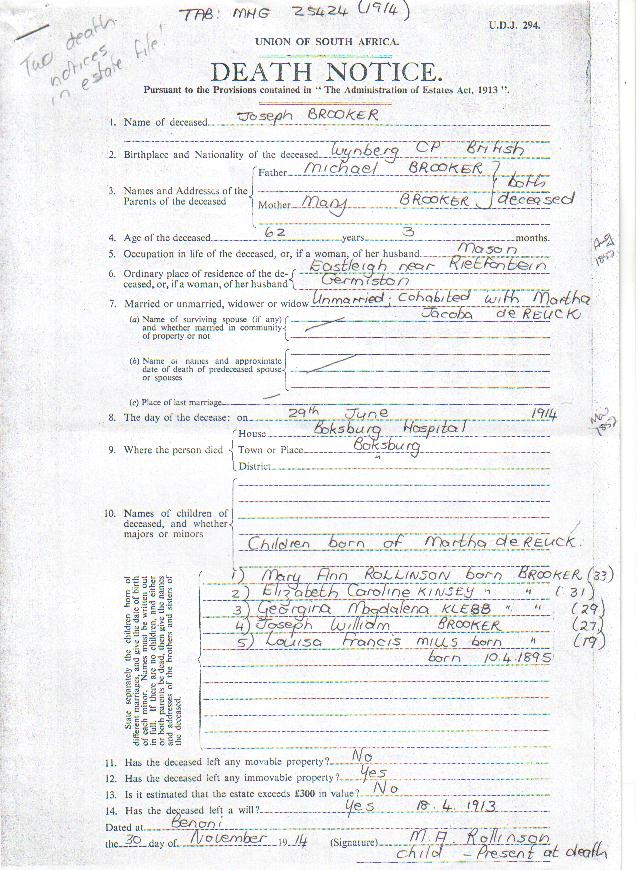 TAB: MHG 25424 (1914)
Two death
notices
in estate file!
U.D.J. 294.
UNION OF SOUTH AFRICA.
DEATH NOTICE.
Pursuant to the Provisions contained in "The Administration of Estates Act, 1913".
1. Name of deceased Joseph BROOKER
2. Birthplace and Nationality of the deceased Wynberg CP British
3. Names and Addresses of the Parents of the deceased
Father Michael BROOKER } both
Mother Mary BROOKER } deceased
4. Age of the deceased 62 years 3 months.
Aug
5. Occupation in life of the deceased, or, if a woman, of her husband Mason
6. Ordinary place of residence of the de-
ceased, or, if a woman, of her husband
Eastleigh near Rietfontein
Germiston
7. Married or unmarried, widower or widow Unmarried; Cohabited with Martha
Jacoba de REUCK
(a) Name of surviving spouse (if any)
and whether married in community
of property or not
(b) Name or names and approximate
date of death of predeceased spouse
or spouses
(c) Place of last marriage
8. The day of the decease: on 29th June 1914
9. Where the person died
House Boksburg Hospital
Town or Place Boksburg
District "
10. Names of children of
deceased, and whether
majors or minors
Children born of Martha de REUCK.
State separately the children born of
different marriages, and give the date of birth
of each minor. Names must be written out
in full. If there are no children, and either
or both parents be dead, then give the names
and addresses of the brothers and sisters of
the deceased.
1) Mary Ann ROLLINSON born BROOKER (33)
2) Elizabeth Caroline KINSEY " " (31)
3) Georgina Magdalena KLEBB " " (29)
4) Joseph William BROOKER (27)
5) Louisa Francis MILLS born " (19)
born 10.4.1895
11. Has the deceased left any movable property? No
12. Has the deceased left any immovable property? Yes
13. Is it estimated that the estate exceeds £300 in value? No
14. Has the deceased left a will? Yes 18.4.1913
Dated at Benoni
the 30 day of November 1914 (Signature) M.A. Rollinson
child - Present at death